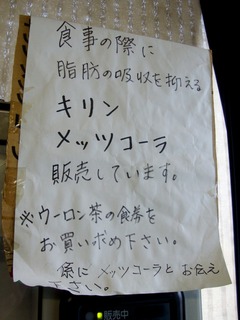 食事の際に
脂肪の吸収を抑える
キリン
メッツコーラ
販売しています。
※ウーロン茶の食券を
お買い求め下さい。
係に メッツコーラと お伝え
下さい。
販売中